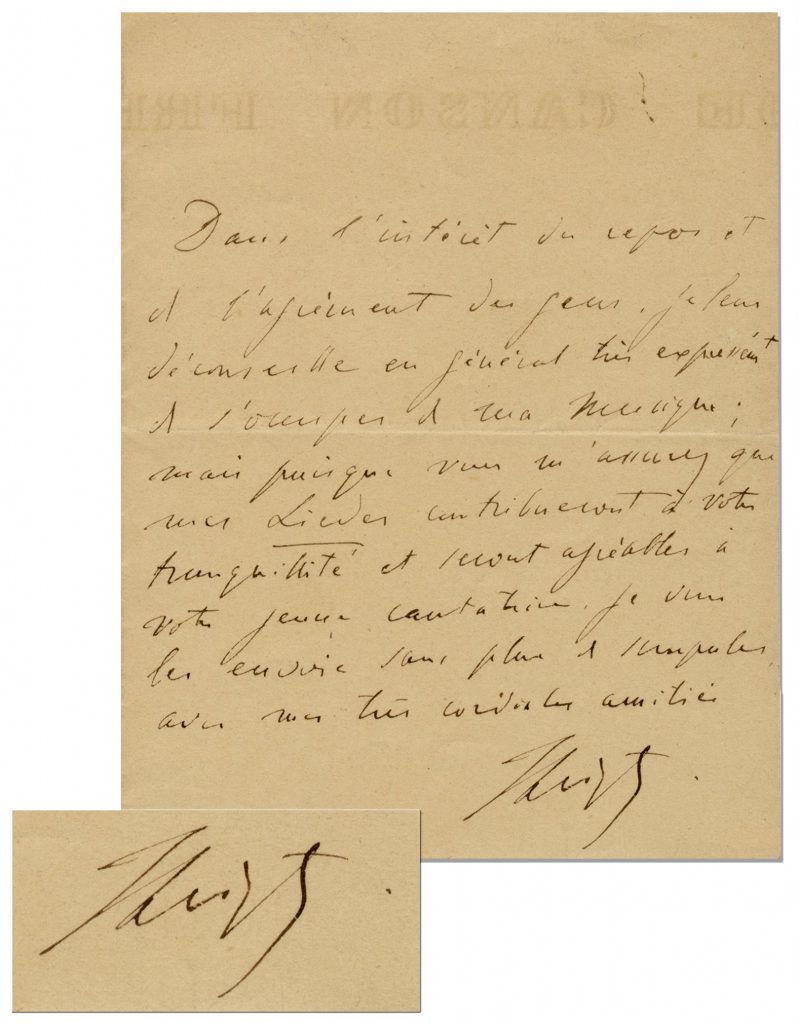 DE CANSON FRE
Dans l'intérêt du repos et
de l'agrément des gens, je leur
déconseille en général très expressémt
de s'occuper de ma Musique;
mais puisque vous m'assurez que
mes Lieder contribueront à votre
tranquillité et seront agréables à
votre jeune cantatrice, je vous
les envoie sans plus de scrupules,
avec mes très cordiales amitiés
FLiszt.
FLiszt.